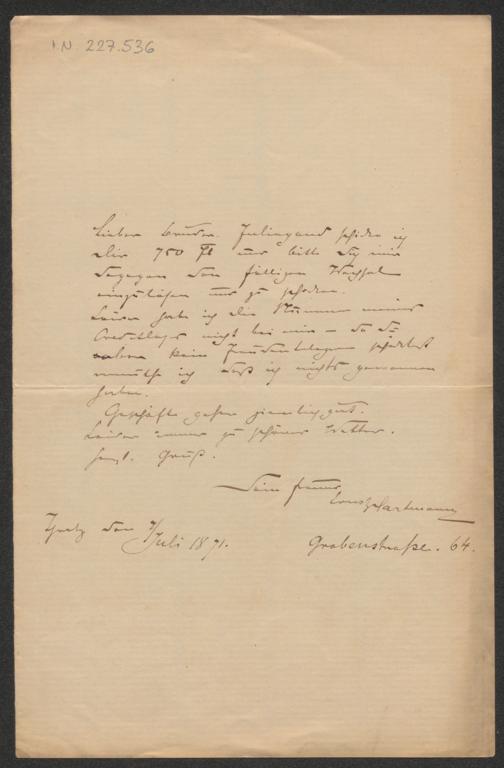 I.N. 227.536
Lieber Bruder. Inliegend schicke ich
Dir 750 fl und bitte Dich mir
dagegen den fälligen Wechsel
einzulösen und zu schicken.
Leider habe ich die Nummer meines
Creditloses nicht bei mir – da Du
aber kein Freudentelegramm schicktest
vermuthe ich daß ich nichts gewonnen
habe.
Geschäfte gehen ziemlich gut.
Leider immer zu schönes Wetter.
Herzl. Gruß.
Dein treuer
Ernst Hartmann
Gratz den 7/Juli 1871.
Grabenstraße. 64.